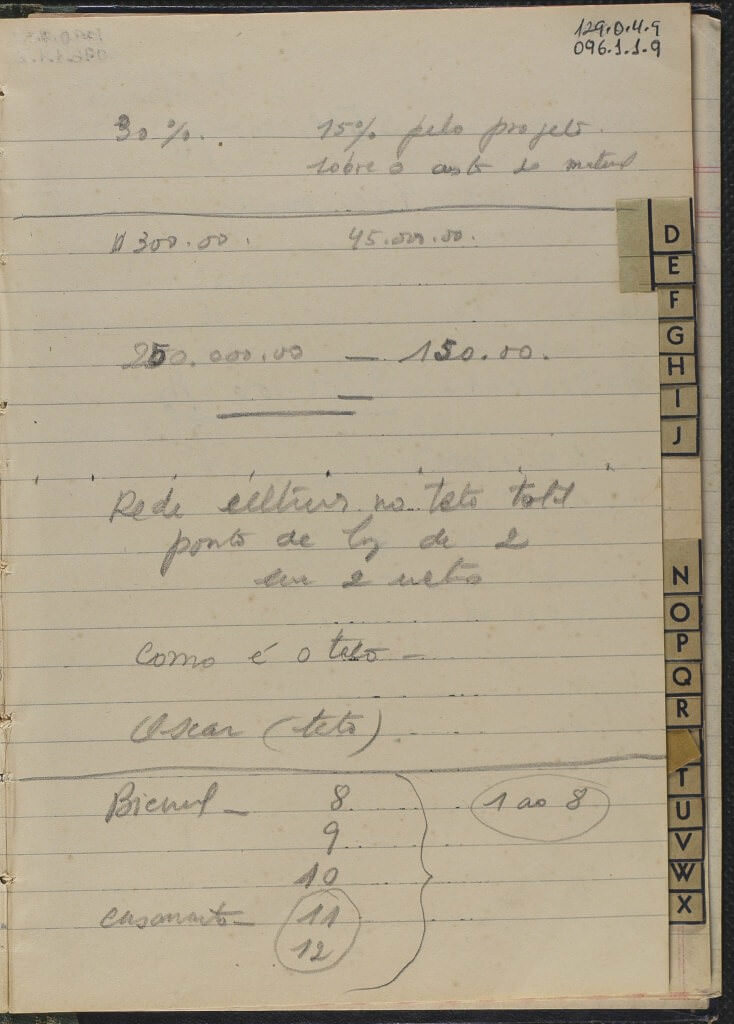 129.0.4.9
096.1.1.9
30%. 15% pelo projeto.
sôbre o custo do material
300.00. 45.000.00.
250.000.00 — 150.00.
Rede elétrica no teto total
ponto de luz de 2
em 2 metros
Como é o teto —
Oscar (teto)
Bienal — 8 1 ao 8
9
10
casamento — 11
12
D
E
F
G
H
I
J
N
O
P
Q
R
T
U
V
W
X